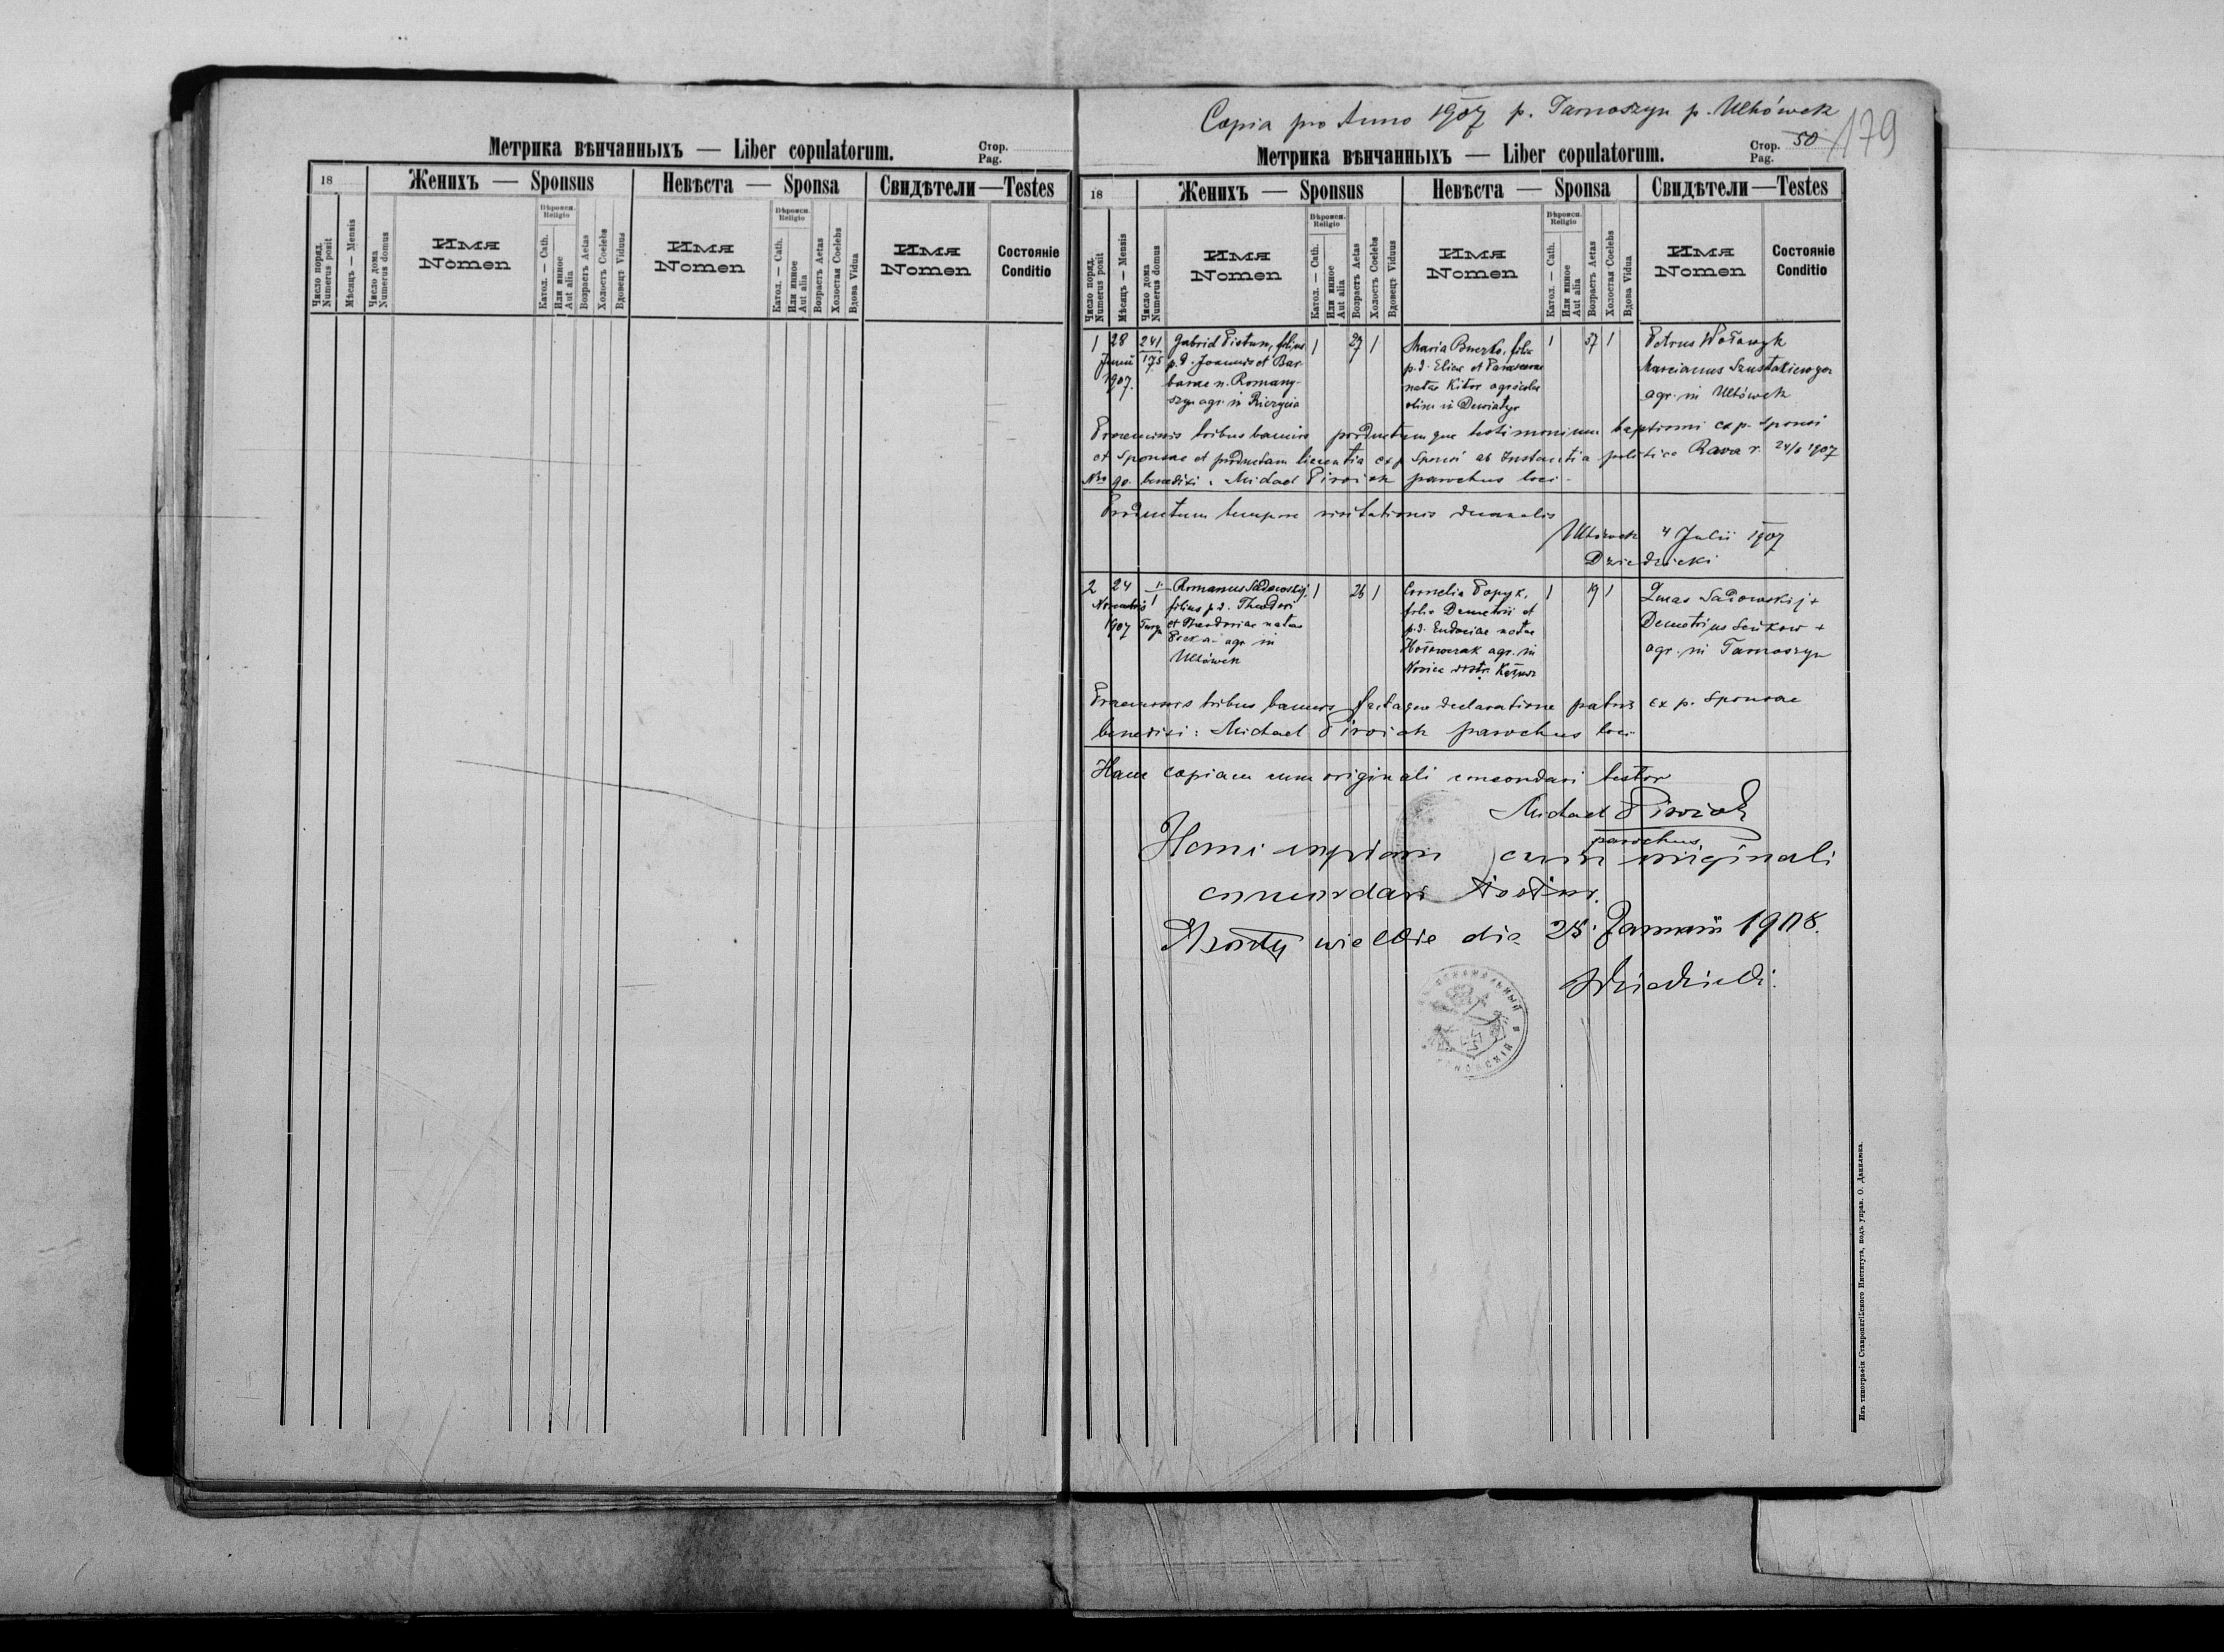 Copia pro Anno 1907 p. Tarnoszyn p. Uhnówek
179
Метрика вѣнчанныхъ — Liber copulatorum.
Стор.
Pag.
18
Женихъ — Sponsus
Невѣста — Sponsa
Свидѣтели — Testes
Число поряд.
Numerus posit
Мѣсяцъ — Mensis
Число дома
Numerus domus
Имя
Nomen
Вѣроисп.
Religio
Катол. — Cath.
Или инное
Aut alia
Возрастъ Aetas
Холостъ Coelebs
Вдовецъ Viduus
Имя
Nomen
Вѣроисп.
Religio
Катол. — Cath.
Или инное
Aut alia
Возрастъ Aetas
Холостая Coelebs
Вдова Vidua
Имя
Nomen
Состояніе
Conditio
Метрика вѣнчанныхъ — Liber copulatorum.
Стор.
Pag. 50
18
Женихъ — Sponsus
Невѣста — Sponsa
Свидѣтели — Testes
Число поряд.
Numerus posit
Мѣсяцъ — Mensis
Число дома
Numerus domus
Имя
Nomen
Вѣроисп.
Religio
Катол. — Cath.
Или инное
Aut alia
Возрастъ Aetas
Холостъ Coelebs
Вдовецъ Viduus
Имя
Nomen
Вѣроисп.
Religio
Катол. — Cath.
Или инное
Aut alia
Возрастъ Aetas
Холостая Coelebs
Вдова Vidua
Имя
Nomen
Состояніе
Conditio
1
28
Junii
1907.
241
175
Gabriel Pistun, filius
p. d. Joannis et Bar-
barae n. Romany-
szyn agr. in
1
27
1
Maria filia
p. d. Eliae et Parascevae
natae Kitor agricolae
olim in Dewiatyr
1
37
1
Petrus
Marcianus
agr. in
Praemissis tribus bannis productumque testimonium baptismi ex p. sponsi
et sponsae et productam licentia ex p. sponsi ab Instantia politica Rava r. 24/6 1907
Nro 90. benedixi: Michael Piroiak parochus loci
Productum tempore visitationis decanalis
4 Julii 1907
Dziedzicki
2
24
Novembris
1907
1
Romanus Sadowskij,
filius p. d. Theodori
et Theodoriae natae
agr. in
1
26
1
Cornelia Popyk,
filia Demetrii et
p. d. Eudociae natae
agr. in
1
19
1
Lucas Sadowskij +
Demetrius Seńkow +
agr. in Tarnoszyn
Praemissis tribus bannis factaque declaratione patris ex p. sponsae
benedixi: Michael Piroiak parochus loci
Hanc copiam cum originali concordari testor
Michael Piroiak
parochus
Hanc copiam cum originali
concordari testor.
Mosty wielkie die 25. Januarii 1908.
Dziedzicki.
Изъ типографіи Ставропигійского Института, подъ управ. О. Данилюка.